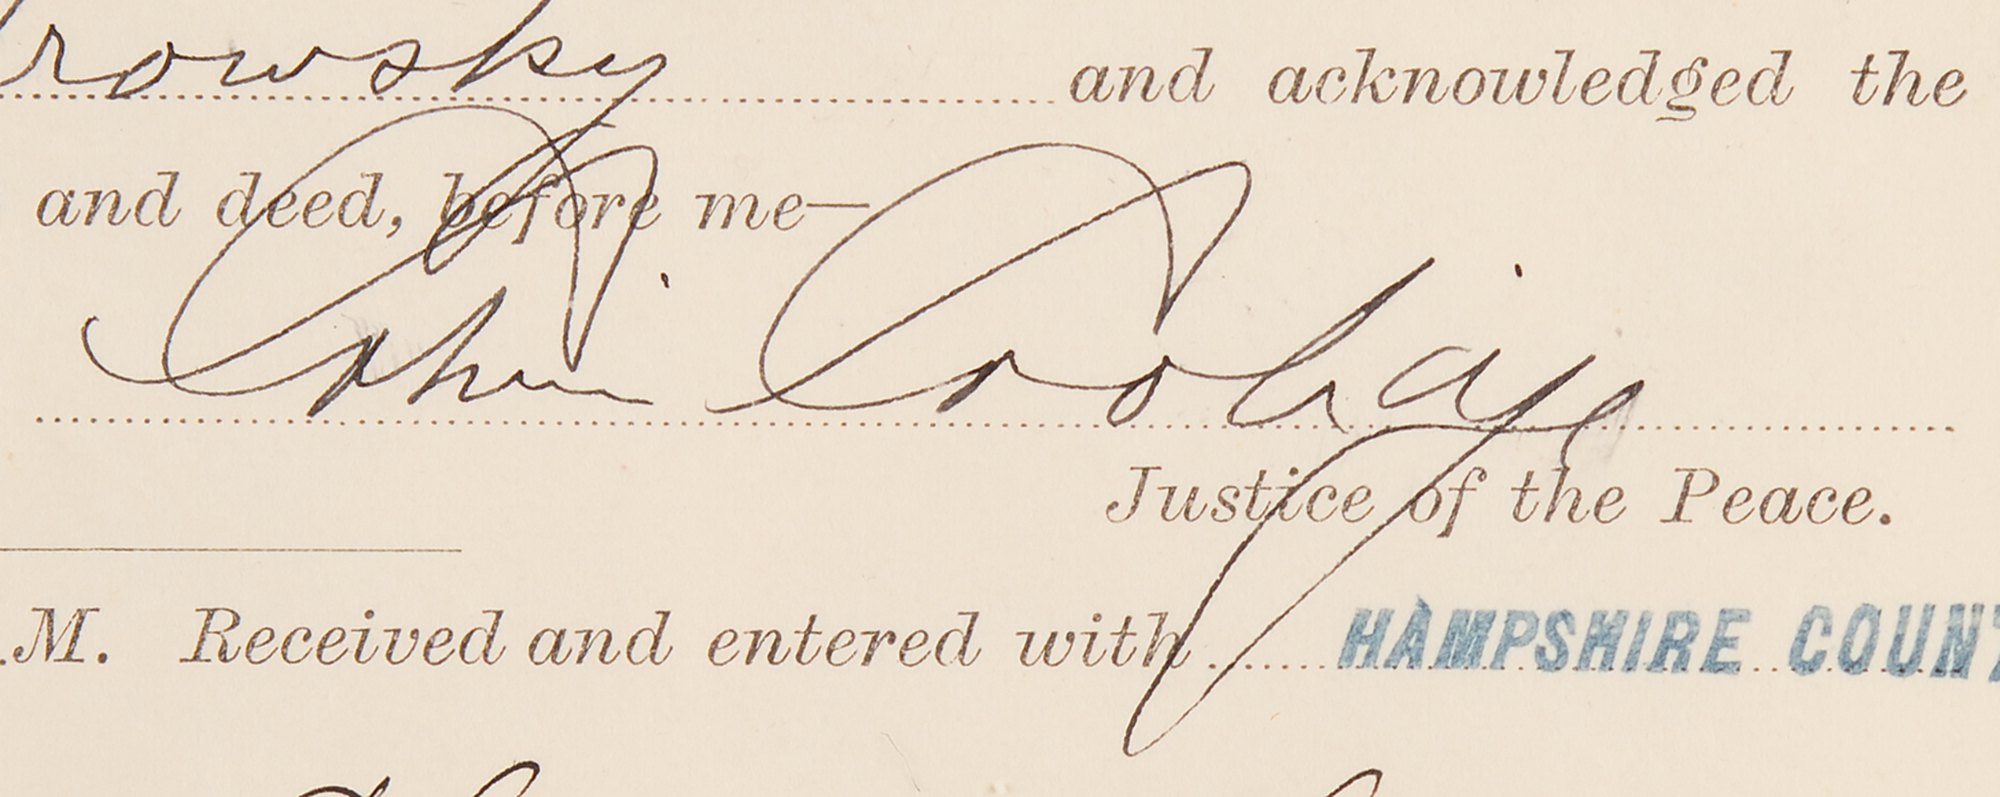 rowsky and acknowledged the
and deed, before me—
Calvin Coolidge
Justice of the Peace.
.M. Received and entered with HAMPSHIRE COUNT